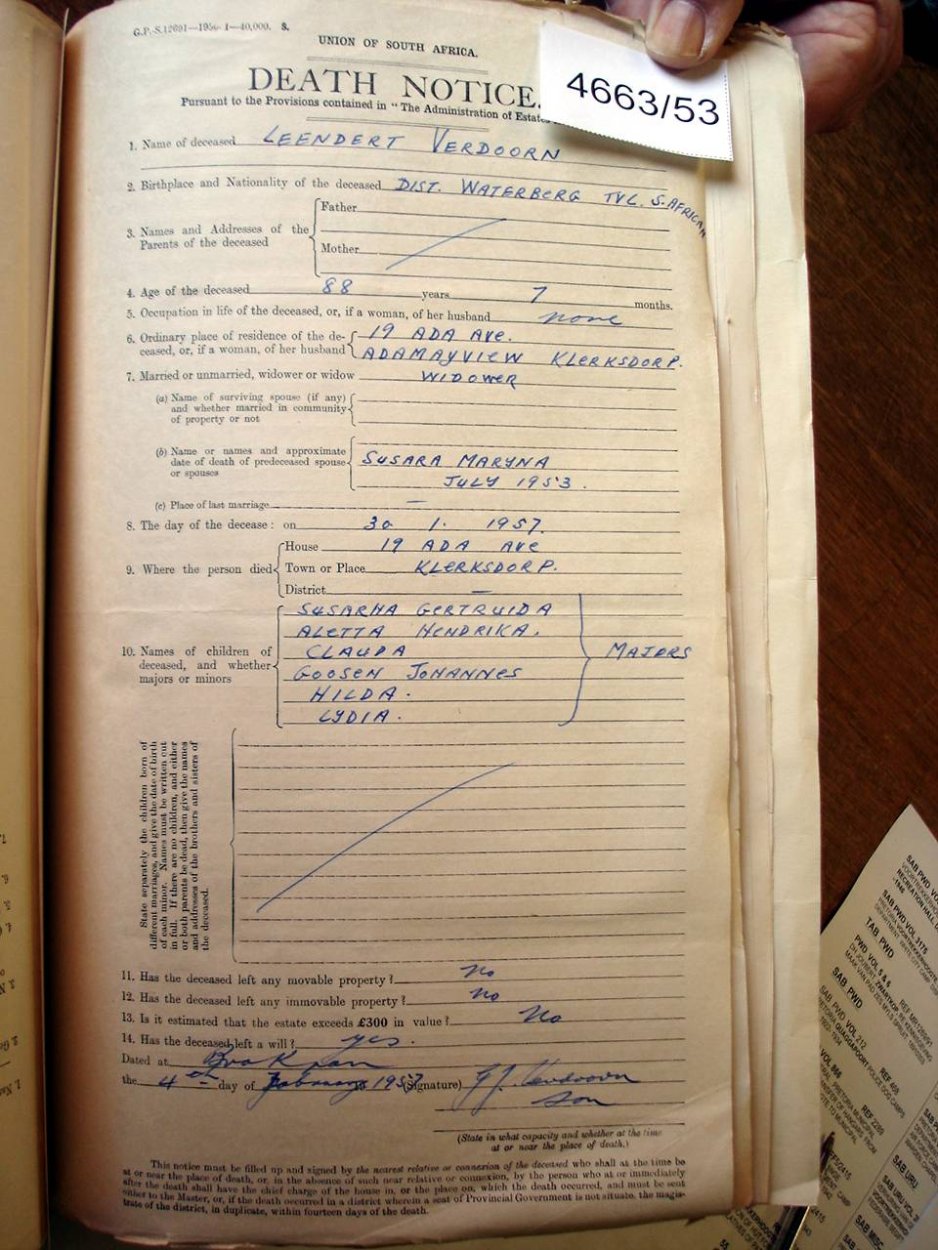 G.P.-S.12691—1956-1—40,000. S.
UNION OF SOUTH AFRICA.
DEATH NOTICE.
4663/53
Pursuant to the Provisions contained in "The Administration of Estates
1. Name of deceased LEENDERT VERDOORN
2. Birthplace and Nationality of the deceased DIST. WATERBERG TVL. S-AFRICAN
3. Names and Addresses of the Parents of the deceased
Father
Mother
4. Age of the deceased 88 years 7 months.
5. Occupation in life of the deceased, or, if a woman, of her husband none
6. Ordinary place of residence of the de-
ceased, or, if a woman, of her husband
19 ADA AVE.
ADAMAYVIEW KLERKSDORP.
7. Married or unmarried, widower or widow WIDOWER
(a) Name of surviving spouse (if any)
and whether married in community
of property or not
(b) Name or names and approximate
date of death of predeceased spouse
or spouses
SUSARA MARYNA
JULY 1953.
(c) Place of last marriage —
8. The day of the decease: on 30 1. 1957.
9. Where the person died
House 19 ADA AVE
Town or Place KLERKSDORP.
District —
10. Names of children of
deceased, and whether
majors or minors
SUSARHA GERTRUIDA
ALETTA HENDRIKA.
CLAUDA
GOOSEN JOHANNES
HILDA.
LYDIA.
MAJORS
State separately the children born of
different marriages, and give the date of birth
of each minor. Names must be written out
in full. If there are no children, and either
or both parents be dead, then give the names
and addresses of the brothers and sisters of
the deceased.
11. Has the deceased left any movable property? no
12. Has the deceased left any immovable property? no
13. Is it estimated that the estate exceeds £300 in value? No
14. Has the deceased left a will? yes.
Dated at Brakpan
the 4th day of February 1957 (Signature) GJ. Verdoorn
son
(State in what capacity and whether at the time
at or near the place of death.)
This notice must be filled up and signed by the nearest relative or connexion of the deceased who shall at the time be
at or near the place of death, or, in the absence of such near relative or connexion, by the person who at or immediately
after the death shall have the chief charge of the house in, or the place on, which the death occurred, and must be sent
either to the Master, or, if the death occurred in a district wherein a seat of Provincial Government is not situate, the magis-
trate of the district, in duplicate, within fourteen days of the death.
SAB PWD VOL 3175
TAB, PWD
PWD VOL 5 & 6
SAB, PWD
SAB PWD VOL 212
REF 459
REF 2280
SAB URU
SAB MISC